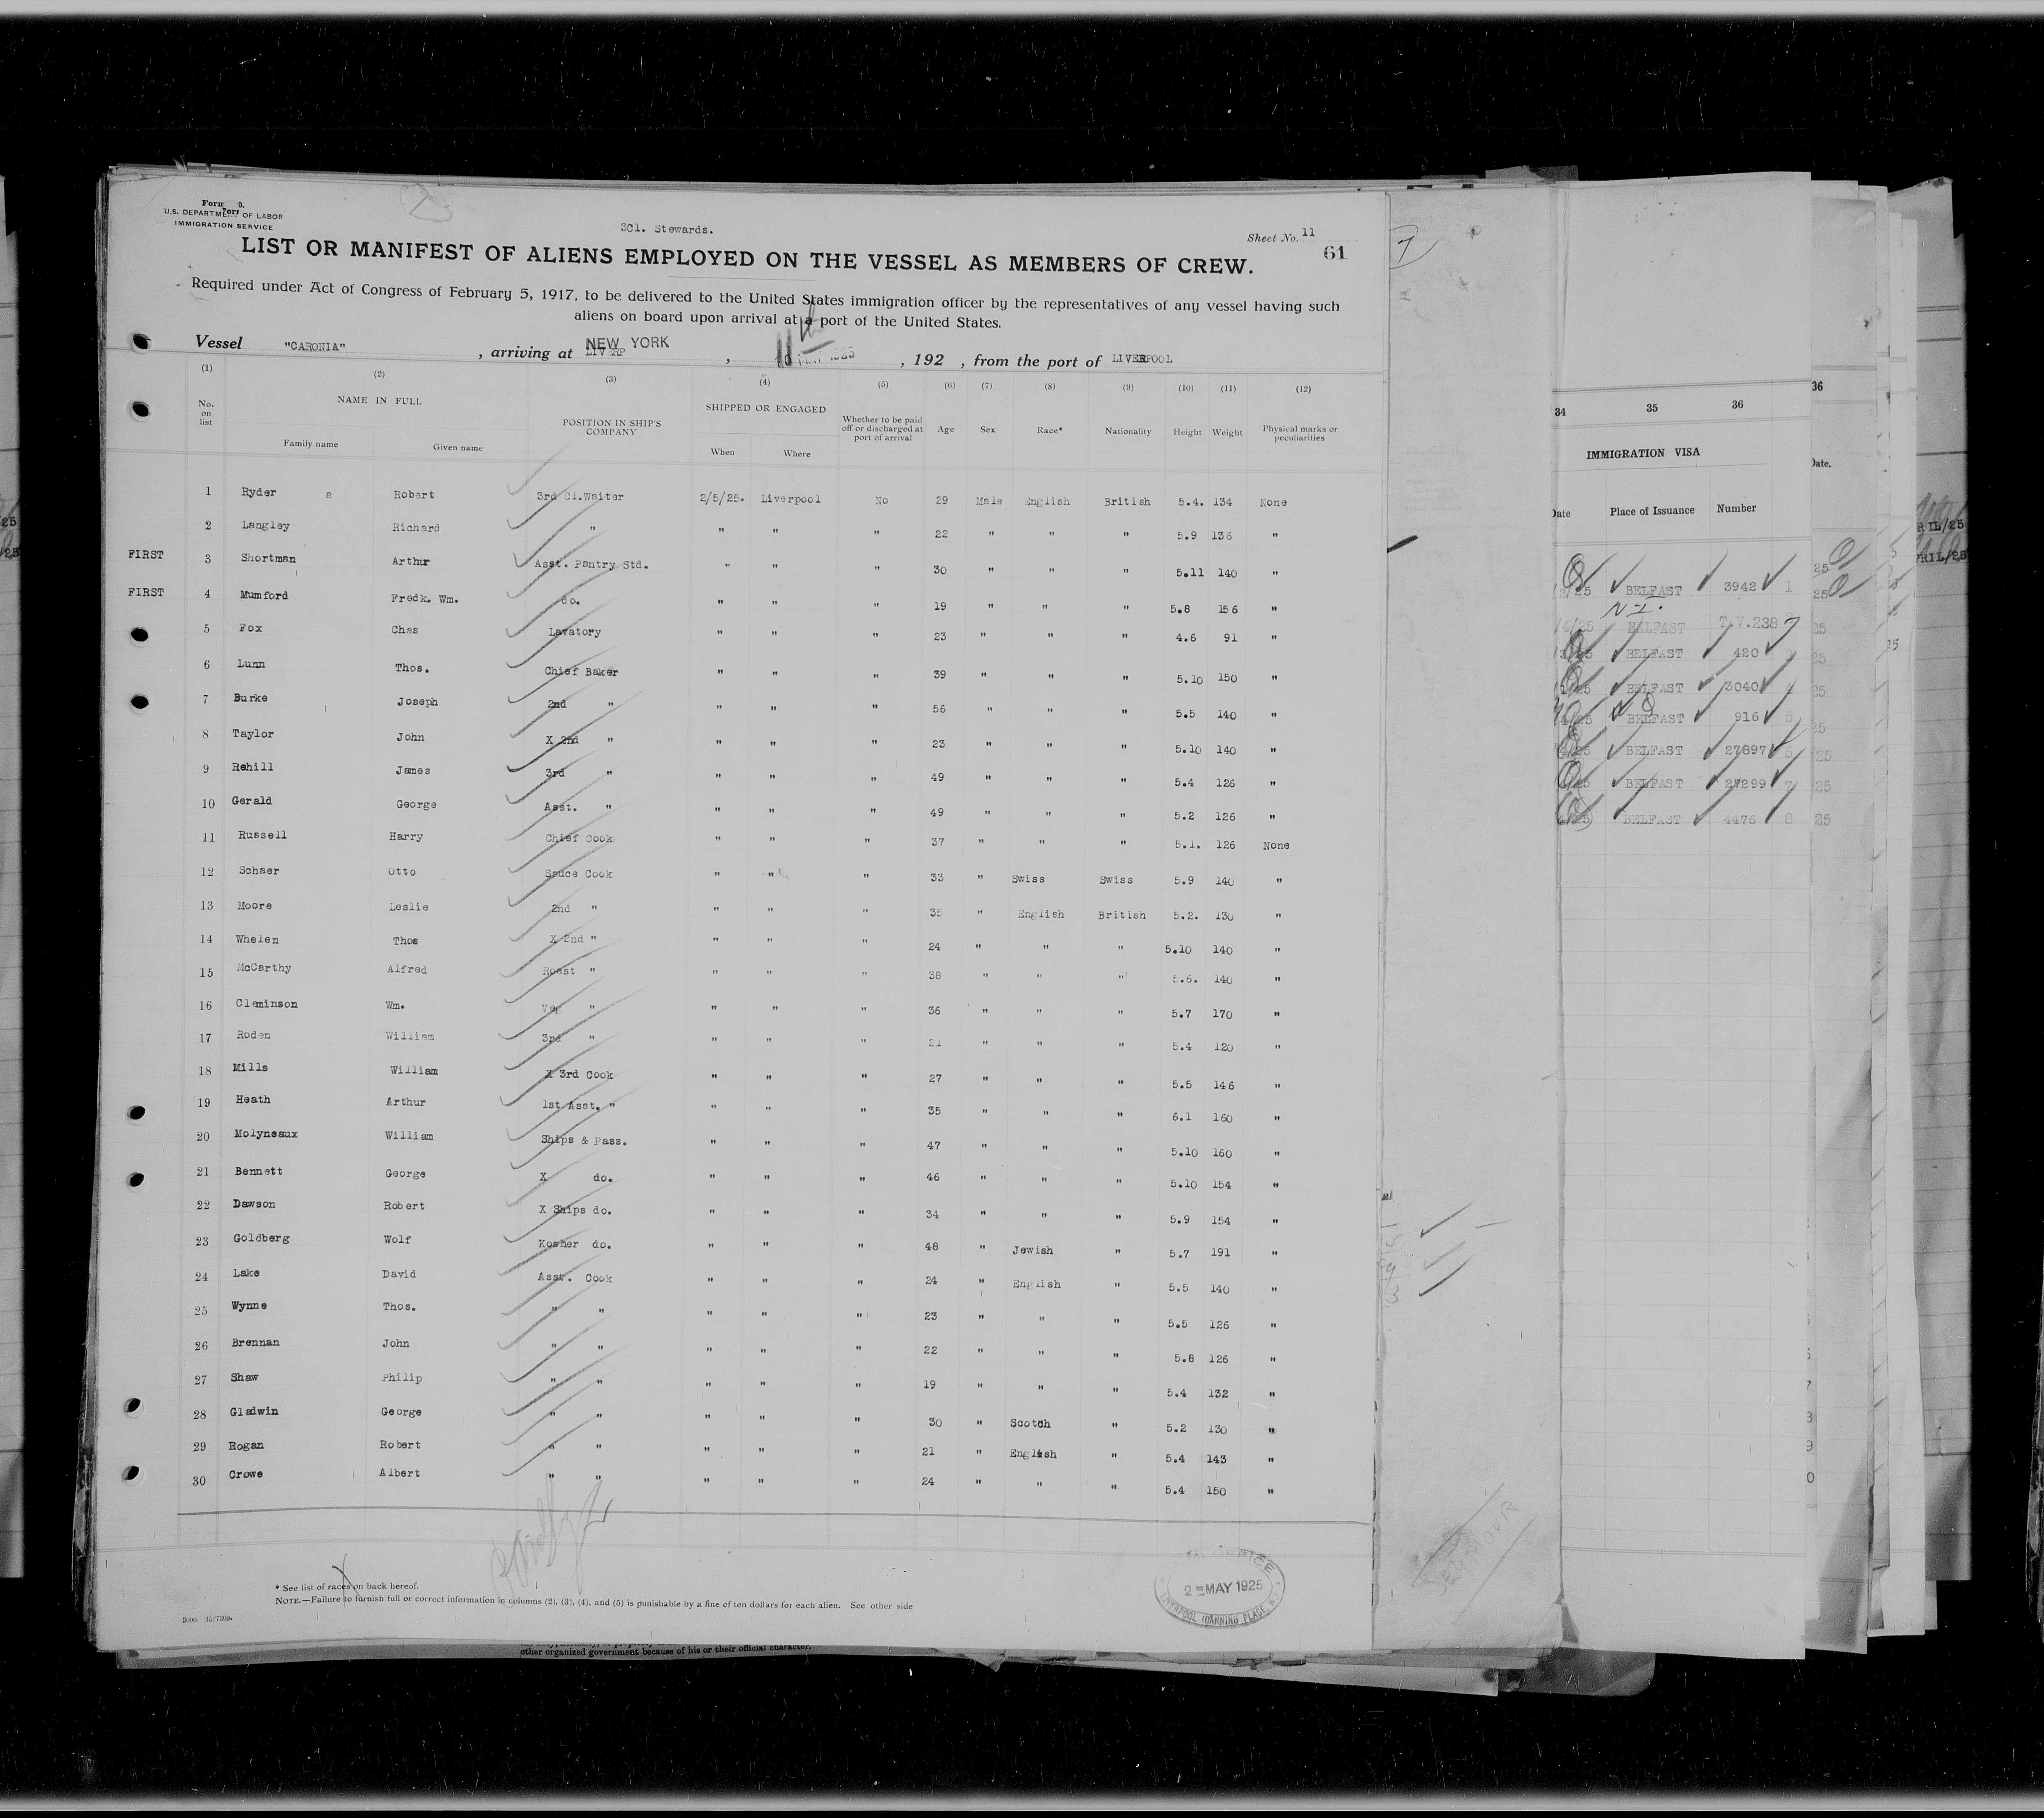 U.S. DEPARTMENT OF LABOR
IMMIGRATION SERVICE
3Cl. Stewards.
Sheet No. 11
61
LIST OR MANIFEST OF ALIENS EMPLOYED ON THE VESSEL AS MEMBERS OF CREW.
Required under Act of Congress of February 5, 1917, to be delivered to the United States immigration officer by the representatives of any vessel having such
aliens on board upon arrival at a port of the United States.
Vessel "CARONIA" , arriving at NEW YORK , , 192 , from the port of LIVERPOOL
(1) (2) (3) (4) (5) (6) (7) (8) (9) (10) (11) (12)
No. on list NAME IN FULL POSITION IN SHIP'S COMPANY SHIPPED OR ENGAGED Whether to be paid off or discharged at port of arrival Age Sex Race* Nationality Height Weight Physical marks or peculiarities
Family name Given name When Where
1 Ryder a Robert 3rd Cl.Waiter 2/5/25. Liverpool No 29 Male English British 5.4. 134 None
2 Langley Richard " " " " 22 " " " 5.9 136 "
FIRST 3 Shortman Arthur Asst. Pantry Std. " " " 30 " " " 5.11 140 "
FIRST 4 Mumford Fredk. Wm. do. " " " 19 " " " 5.8 156 "
5 Fox Chas Lavatory " " " 23 " " " 4.6 91 "
6 Lunn Thos. Chief Baker " " " 39 " " " 5.10 150 "
7 Burke Joseph 2nd " " " " 56 " " " 5.5 140 "
8 Taylor John X 2nd " " " " 23 " " " 5.10 140 "
9 Rehill James 3rd " " " " 49 " " " 5.4 126 "
10 Gerald George Asst. " " " " 49 " " " 5.2 126 "
11 Russell Harry Chief Cook " " " 37 " " " 5.1. 126 None
12 Schaer Otto Sauce Cook " " " 33 " Swiss Swiss 5.9 140 "
13 Moore Leslie 2nd " " " " 35 " English British 5.2. 130 "
14 Whelen Thos X 2nd " " " " 24 " " " 5.10 140 "
15 McCarthy Alfred Roast " " " " 38 " " " 5.6. 140 "
16 Cleminson Wm. Veg " " " " 36 " " " 5.7 170 "
17 Roden William 3rd " " " " 21 " " " 5.4 120 "
18 Mills William X 3rd Cook " " " 27 " " " 5.5 146 "
19 Heath Arthur 1st Asst. " " " " 35 " " " 6.1 160 "
20 Molyneaux William Ships & Pass. " " " 47 " " " 5.10 160 "
21 Bennett George X do. " " " 46 " " " 5.10 154 "
22 Dawson Robert X Ships do. " " " 34 " " " 5.9 154 "
23 Goldberg Wolf Kosher do. " " " 48 " Jewish " 5.7 191 "
24 Lake David Asst. Cook " " " 24 " English " 5.5 140 "
25 Wynne Thos. " " " " " 23 " " " 5.5 126 "
26 Brennan John " " " " " 22 " " " 5.8 126 "
27 Shaw Philip " " " " " 19 " " " 5.4 132 "
28 Gladwin George " " " " " 30 " Scotch " 5.2 130 "
29 Rogan Robert " " " " " 21 " English " 5.4 143 "
30 Crowe Albert " " " " " 24 " " " 5.4 150 "
* See list of races on back hereof.
NOTE.—Failure to furnish full or correct information in columns (2), (3), (4), and (5) is punishable by a fine of ten dollars for each alien. See other side
2 MAY 1925
other organized government because of his or their official character.
7
34 35 36
IMMIGRATION VISA
Date Place of Issuance Number
BELFAST 3942 1
N-I.
/4/25 BELFAST T.V.238
BELFAST 420
BELFAST 3040 4
BELFAST 916 5
BELFAST 27897 6
BELFAST 27299 7
BELFAST 4476 8
SEYMOUR
36
Date.
25
25
25
25
25
25
25
25
RIL/25
PRIL/25